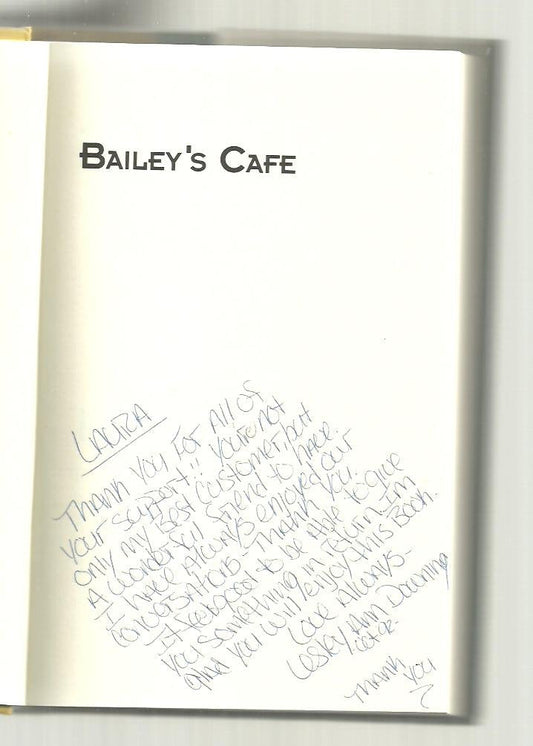 BAILEY'S CAFE
LAURA
THANK YOU FOR All OF
your support!! You're not
only my Best customer, but
A wonderful friend to have.
I have Always enjoyed our
conversations - Thank you.
It feels good to be Able to give
you something in return. I'm
you will enjoy this Book.
Love Always -
Lesley Ann Downing
THANK
YOU